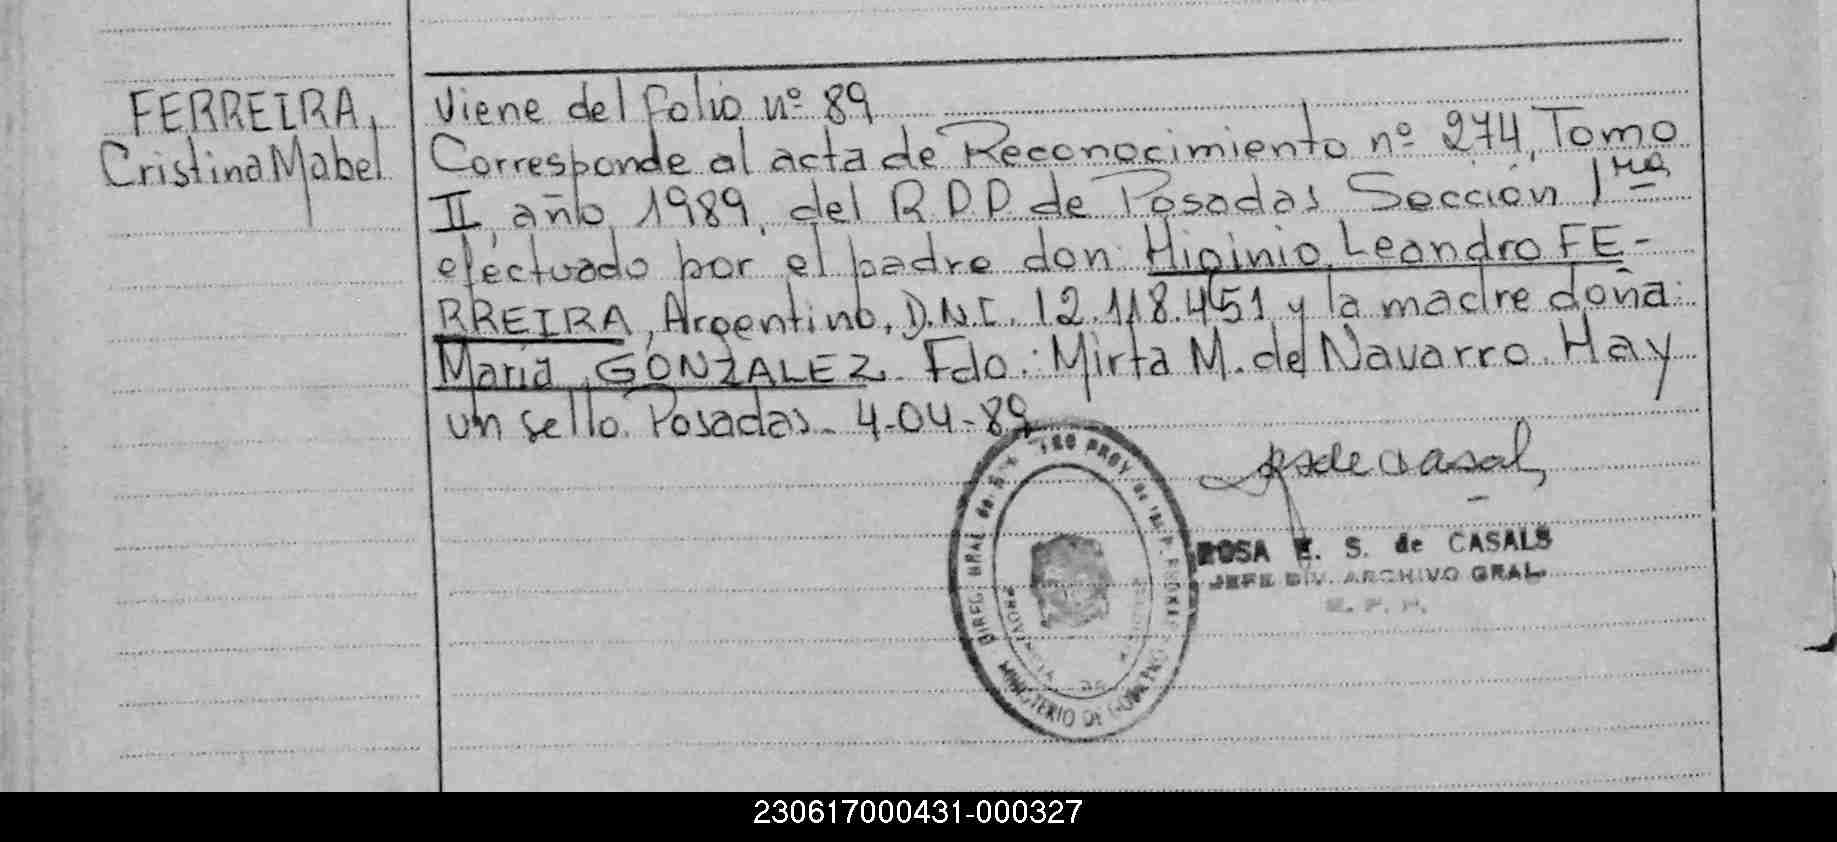 FERREIRA,
Cristina Mabel
Viene del folio nº 89
Corresponde al acta de Reconocimiento nº 274, Tomo
II, año 1989, del R.P.P. de Posadas Sección 1ra
efectuado por el padre don: Higinio Leandro FE-
RREIRA, Argentino, D.N.I. 12.118.451 y la madre doña:
Maria GONZALEZ. Fdo: Mirta M. de Navarro. Hay
un sello. Posadas. 4-04-89
ROSA E. S. de CASALS
JEFE DIV. ARCHIVO GRAL.
DIREC. GRAL de
MINISTERIO DE GOBIERNO
230617000431-000327